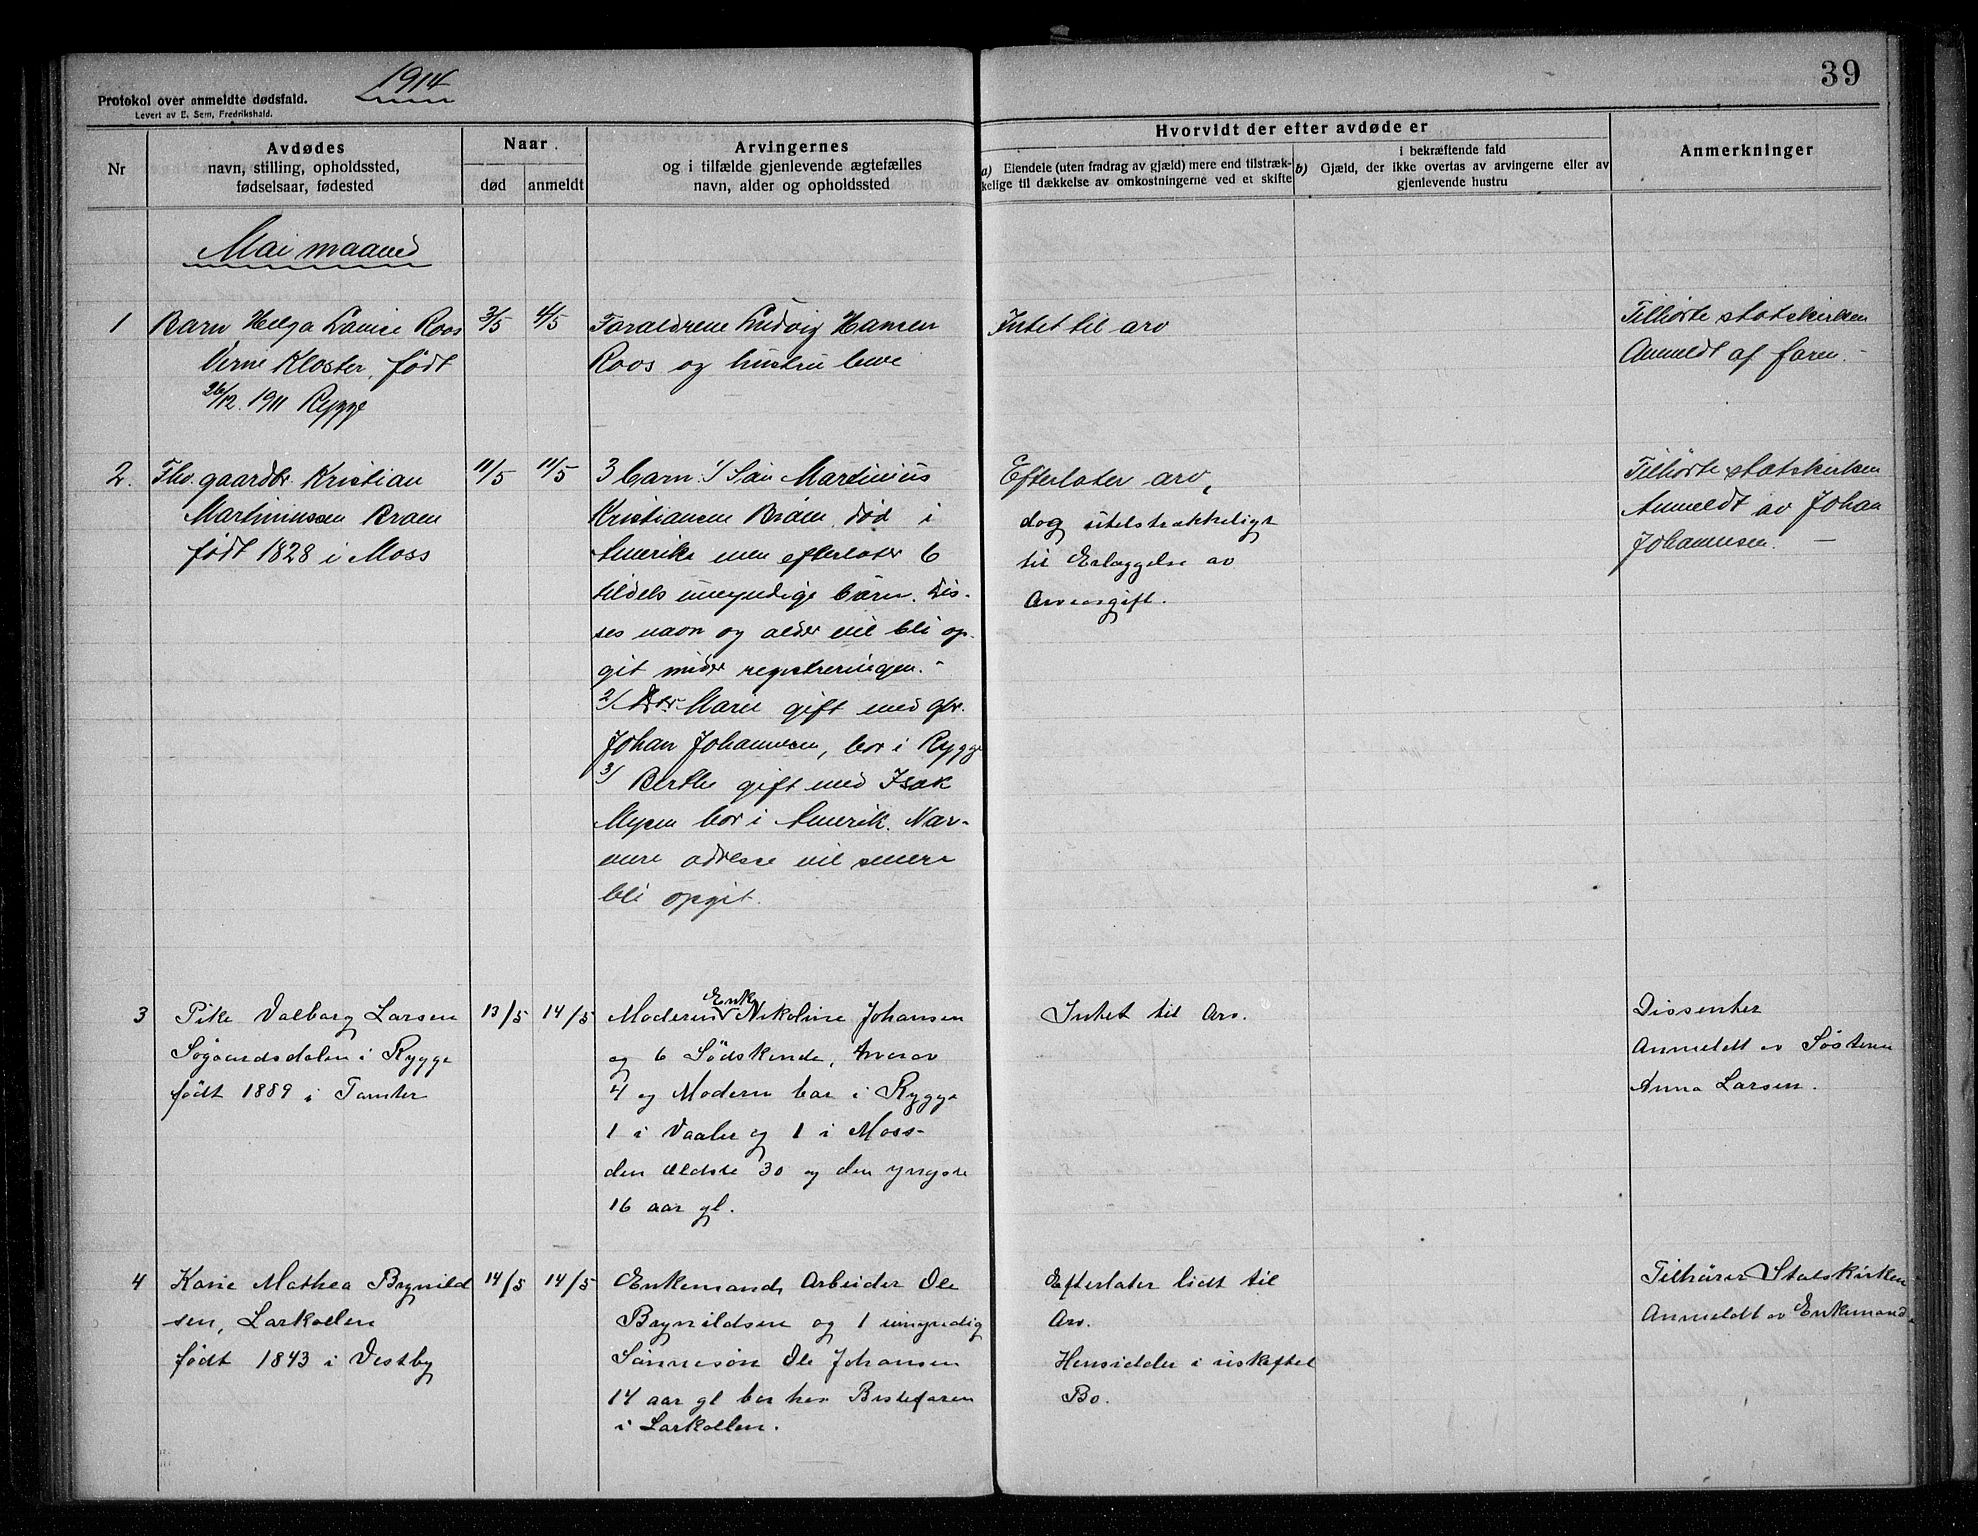 1914
39
Protokol over anmeldte dødsfald.
Levert av E. Sem, Fredrikshald.
Nr
Avdødes
navn, stilling, opholdssted,
fødselsaar, fødested
Naar
død
anmeldt
Arvingernes
og i tilfælde gjenlevende ægtefælles
navn, alder og opholdssted
Hvorvidt der efter avdøde er
a) Eiendele (uten fradrag av gjæld) mere end tilstræk-
kelige til dækkelse av omkostningerne ved et skifte
i bekræftende fald
b) Gjæld, der ikke overtas av arvingerne eller av
gjenlevende hustru
Anmerkninger
Mai maaned
1
Barn Helga Lovise Roos
Verne Kloster, født
26/12. 1911 Rygge
3/5
4/5
Foraldrene Ludvig Hansen
Roos og hustru leve
Intet til arv
Tilhørte statskirken
Anmeldt af faren. -
2.
Fhv. gaardbr. Kristian
Martinussen Braen
født 1828 i Moss
11/5
11/5
3 barn: 1/ Søn Martinius
Kristiansen Braen, død i
Amerika men efterlater 6
tildels umyndige børn. Dis-
ses navn og alder vil bli op-
git under registreringen. -
2/ Dtr. Marie gift med gbr.
Johan Johannesen, bor i Rygge
3/ Berthe gift med Isak
Mysen bor i Amerik. Nær-
mere adresse vil senere
bli opgit.
Efterlater arv,
dog utilstrækkeligt
til Erlæggelse av
Arveavgift.
Tilhørte statskirken
Anmeldt av Johan
Johannesen. -
3
Pike Valborg Larsen
Sogaardsdalen i Rygge
født 1889 i Tomter
13/5
14/5
Moderen Enke Nikoline Johansen
og 6 Sødskende, hvorav
4 og Modern bor i Rygge
1 i Vaaler og 1 i Moss-
den ældste 30 og den yngste
16 aar gl.
Intet til Arv.
Dissenter
Anmeldt av Søsteren
Anna Larsen.
4
Karie Mathea Brynild
sen, Larkollen
født 1843 i Vestby
14/5
14/5
Enkemand Arbeider Ole
Brynildsen og 1 umyndig
Sønnesøn Ole Johansen
14 aar gl bor hos Bestefaren
i Larkollen.
Efterlater lidt til
Arv.
Hensidder i uskiftet
Bo.
Tilhører Statskirken
Anmeldt av Enkemand.